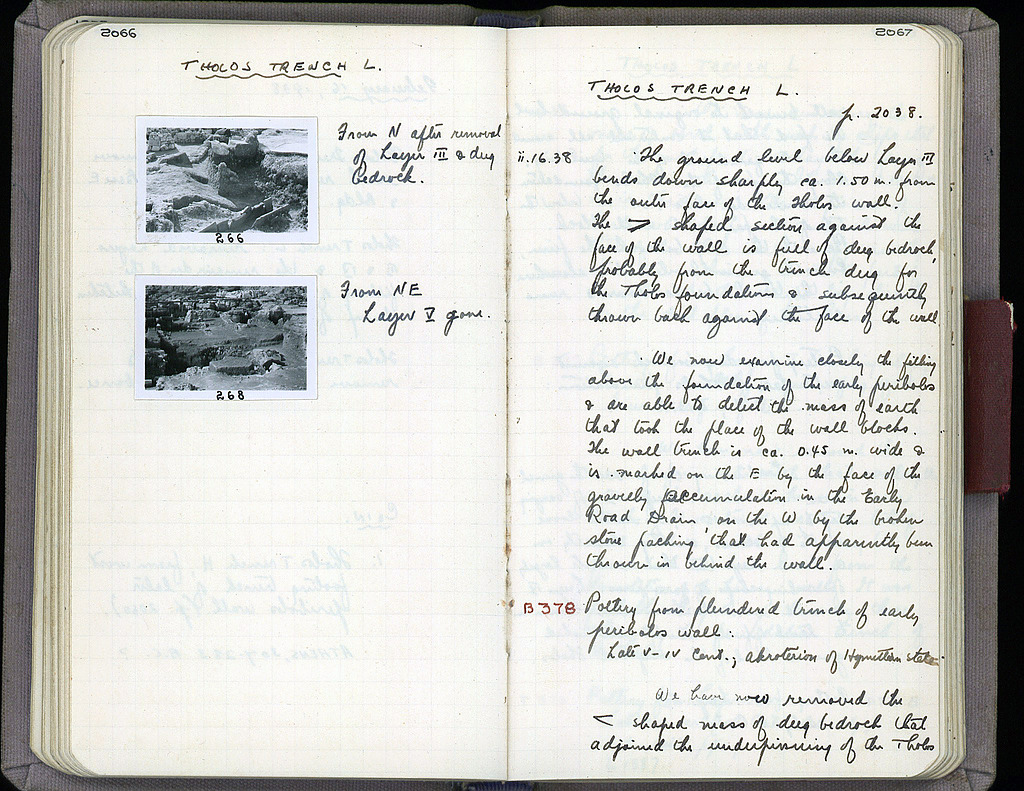 2066
THOLOS TRENCH L.
From N after removal
of Layer III & dug
bedrock.
266
From NE
Layer V gone.
268
2067
THOLOS TRENCH L.
p. 2038.
ii.16.38 The ground level below Layer III
bends down sharply ca. 1.50 m. from
the outer face of the Tholos wall.
The > shaped section against the
face of the wall is full of dug bedrock,
probably from the trench dug for
the Tholos foundations & subsequently
thrown back against the face of the wall.
We now examine closely the filling
above the foundation of the early peribolos
& are able to detect the mass of earth
that took the place of the wall blocks.
The wall trench is ca. 0.45 m. wide &
is marked on the E by the face of the
gravelly accumulation in the Early
Road Drain on the W by the broken
stone packing that had apparently been
thrown in behind the wall.
B 378 Pottery from plundered trench of early
peribolos wall.
Late V-IV cent.; akroterion of Hymettian stele.
We have now removed the
< shaped mass of dug bedrock that
adjoined the underpinning of the Tholos